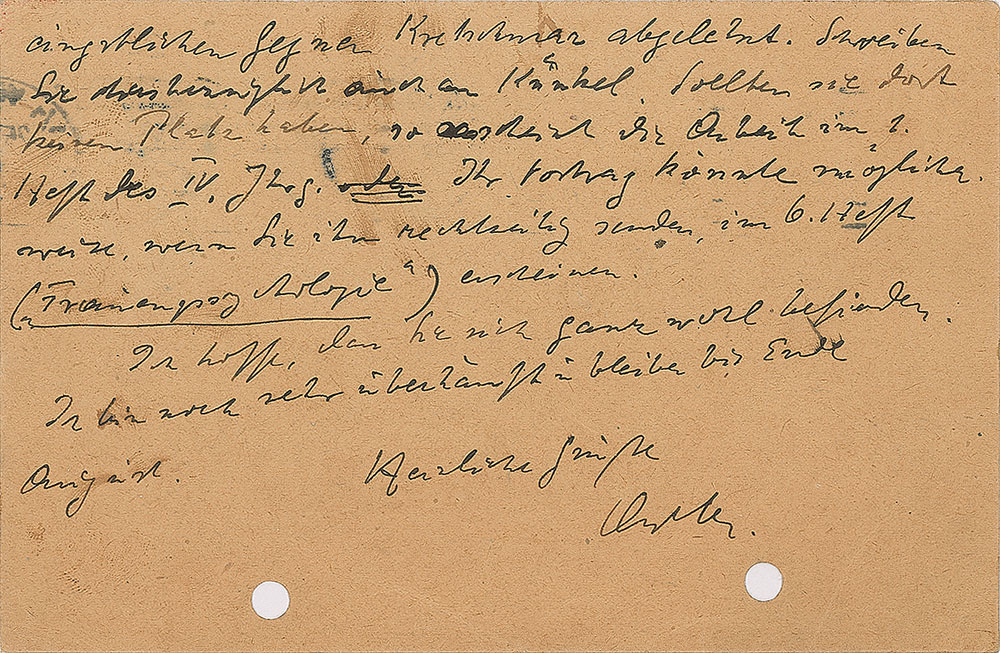 Gegner Kretschmar abgelehnt. Schreiben
Sie diesbezüglich auch an Künkel. Sollten sie dort
keinen Platz haben, so erscheint die Arbeit im 1.
Heft des IV. Jhrg. Ihr Vortrag könnte möglicher-
weise, wenn Sie ihn rechtzeitig senden, im 6. Heft
(„Frauenpsychologie“) erscheinen.
Ich hoffe, dass Sie sich ganz wohl befinden.
Ich bin noch sehr überhäuft u bleibe bis Ende
August. Herzliche Grüße
Adler.